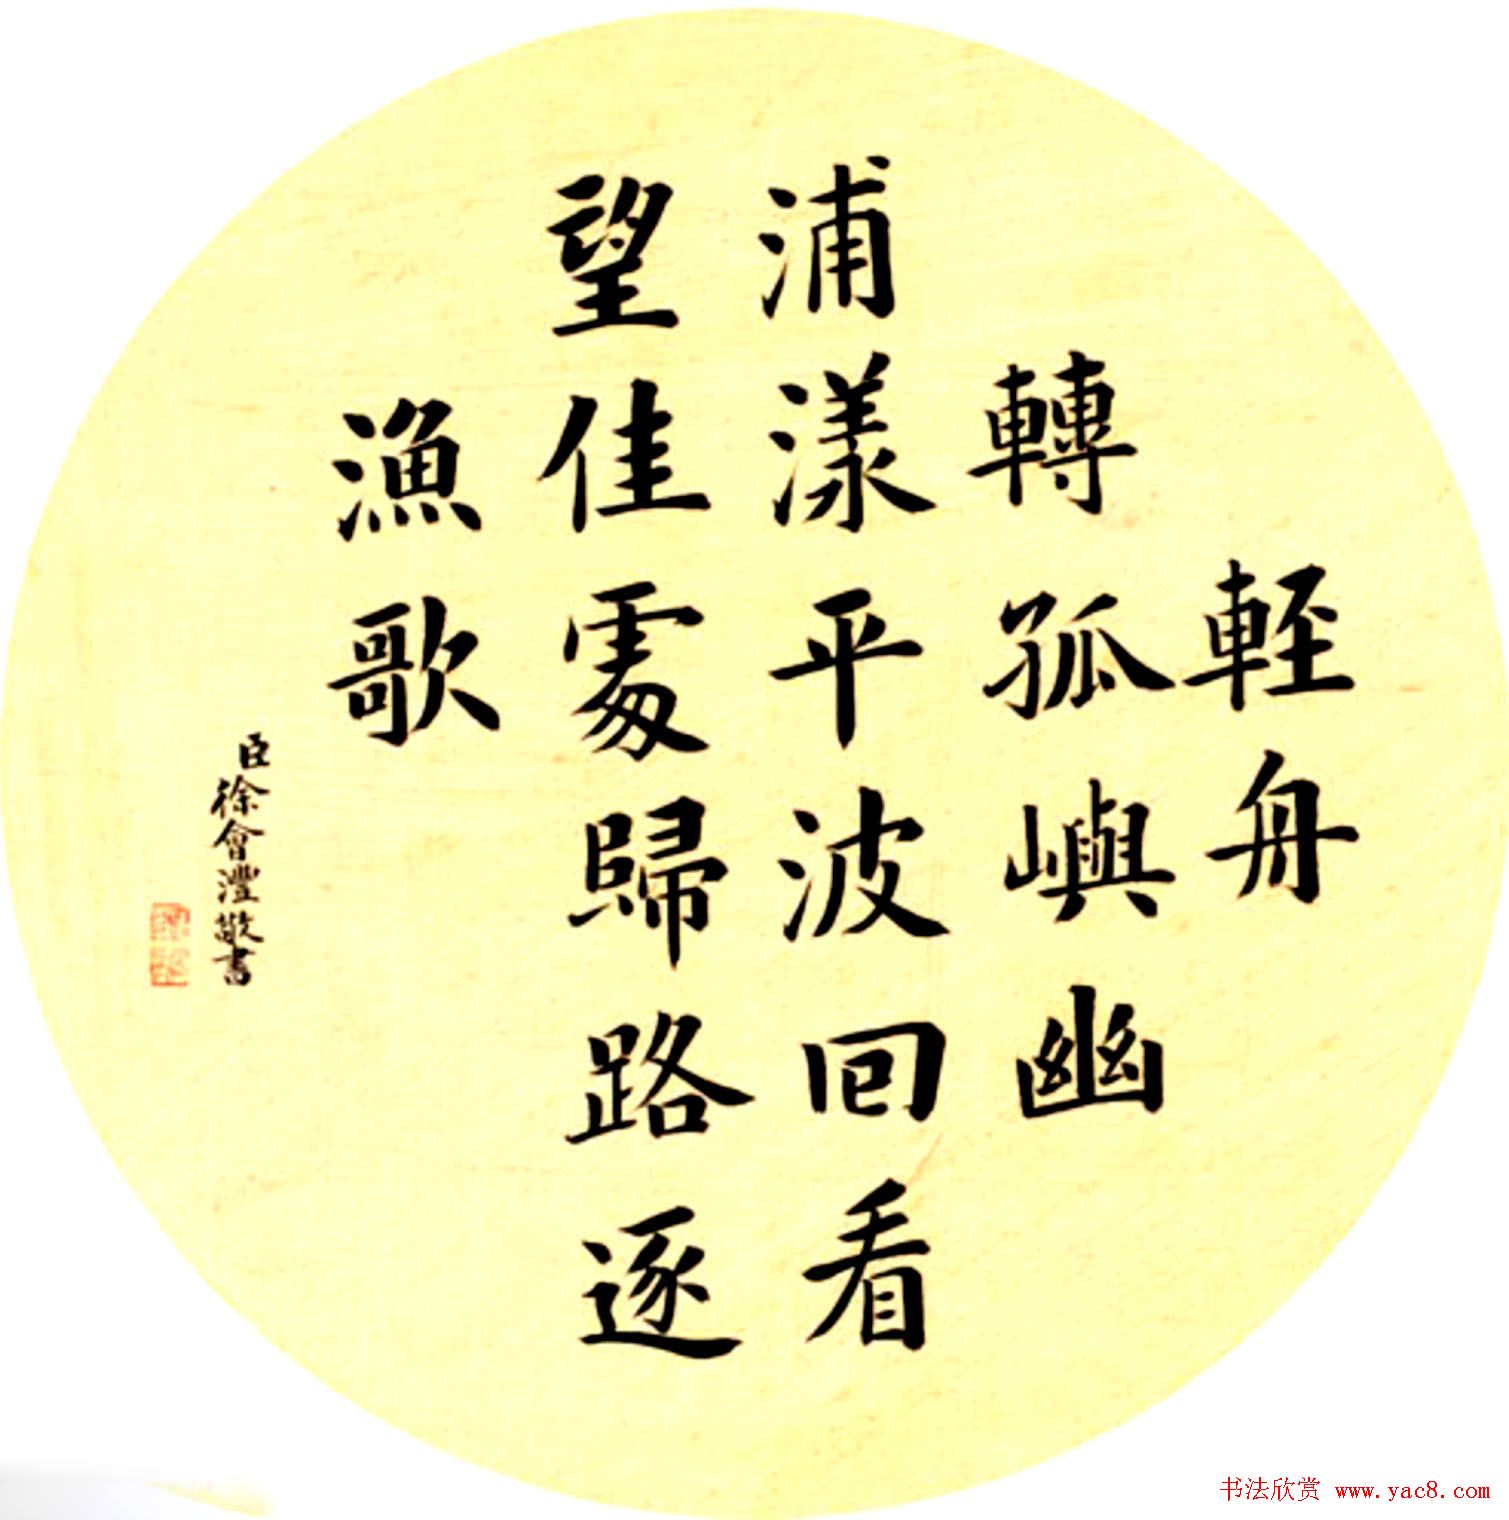 輕舟
轉孤嶼幽
浦漾平波回看
望佳處歸路逐
漁歌
臣徐會灃敬書
书法欣赏 www.yac8.com